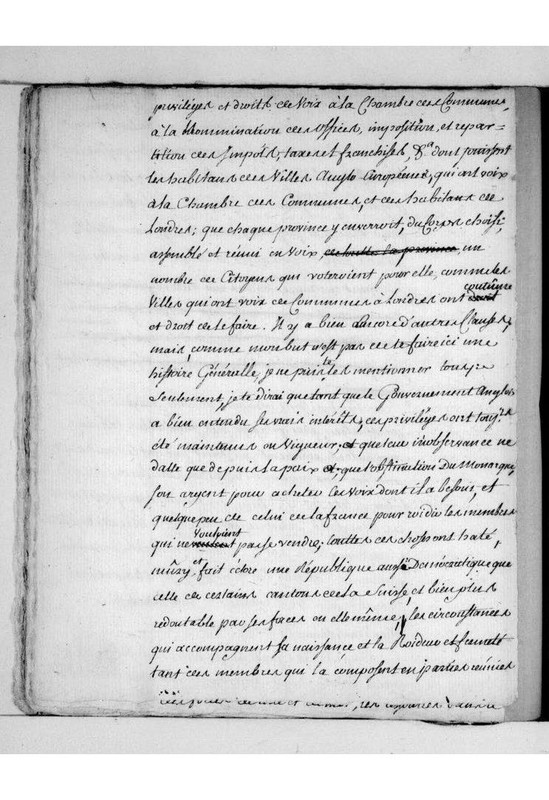 privilèges et droits de Voix à la Chambre des Communes,
à la Nommination des offices, imposition, et repar-
tition des Impôts, taxes et franchises, &a dont jouissent
les habitans des Villes Anglo Européenes, qui ont voix
à la Chambre des Communes, et des habitans de
Londres; que chaque province y enverroit, du Corps choisi,
assemblé et réuni en voix, de toutte la province, un
nombre de Citoyens qui voteroient pour elle, comme les
Villes qui ont voix de Communes à Londres ont coutume
et droit de le faire. Il y a bien encore d'autres Clauses,
mais, comme mon but n'est pas de te faire ici une
histoire Générelle, je ne puis te les mentionner
Seulement, je te dirai que tant que le Gouvernement Anglois
a bien entendu ses vrais intérêts, ces privilèges ont toujrs
été maintenus en Vigueur, et que leur inobservance ne
datte que depuis la paix et, que l'obstination Du Monarque,
son argent pour acheter les voix dont il a besoin, et
quelque peu de celui de la france pour roidir les membres
qui ne vouloient pas se vendre; touttes ces choses ont haté,
mûry et fait éclore une République aussi Démocratique que
celle de certains cantons de la Suisse, et bien plus
redoutable par ses forces en elle même, les circonstances
qui accompagnent sa naissance et la Roideur et fermeté
tant des membres qui la composent en parties réunies